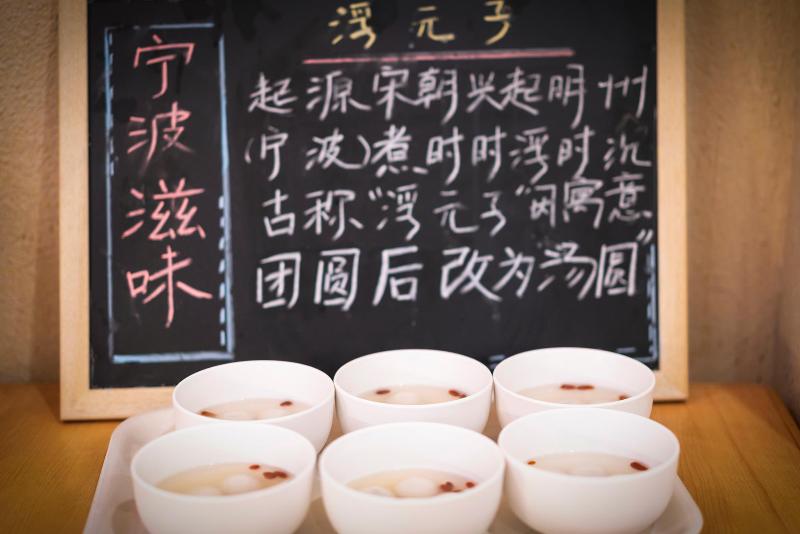 宁波滋味
浮元子
起源宋朝兴起明州
(宁波)煮时时浮时沉
古称"浮元子"因寓意
团圆后改为"汤圆"